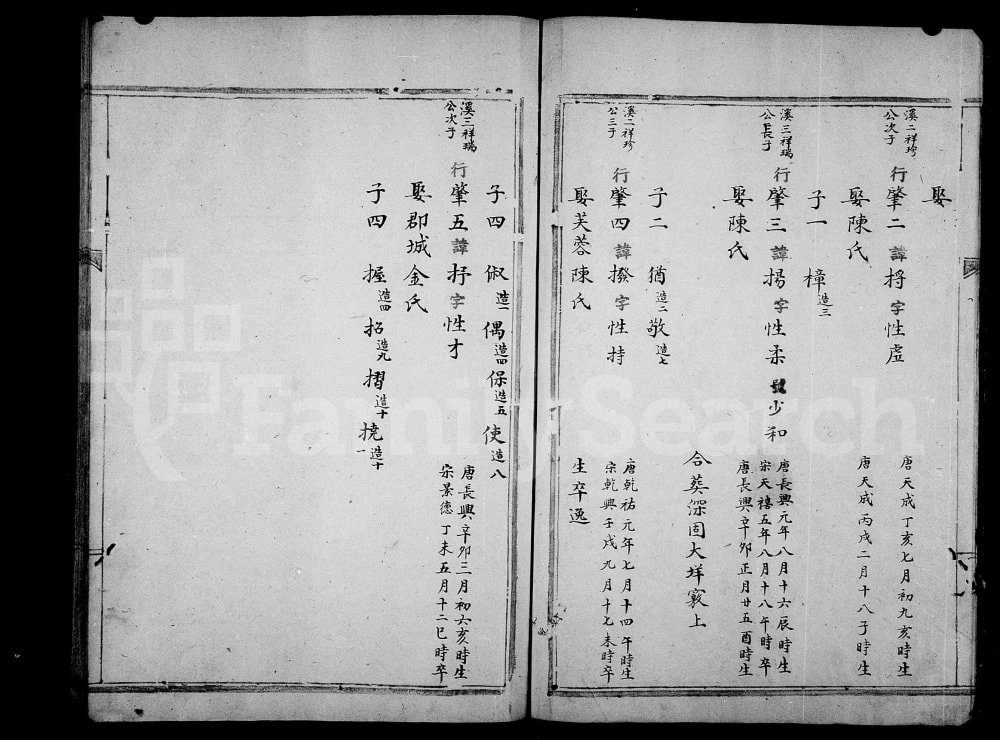 娶
溪二祥珍
公次子
行肇二諱捋字性虛
唐天成丁亥七月初九亥時生
娶陳氏
唐天成丙戌二月十八子時生
子一 樟造三
溪三祥瑞
公長子
行肇三諱揚字性柔 號少和
唐長興元年八月十六辰時生
宋天禧五年八月十八午時卒
娶陳氏
唐長興辛卯正月廿五酉時生
合葬深固大垟竅上
子二 猶造二 敬造七
溪二祥珍
公三子
行肇四諱撥字性持
唐乾祐元年七月十四午時生
宋乾興壬戌九月十七未時卒
娶芙蓉陳氏
生卒逸
子四 俶造一 偶造四 保造五 使造八
溪三祥瑞
公次子
行肇五諱抒字性才
唐長興辛卯三月初六亥時生
宋景德丁未五月十二巳時卒
娶郡城金氏
子四 握造四 招造九 摺造十 撓造十一
FamilySearch